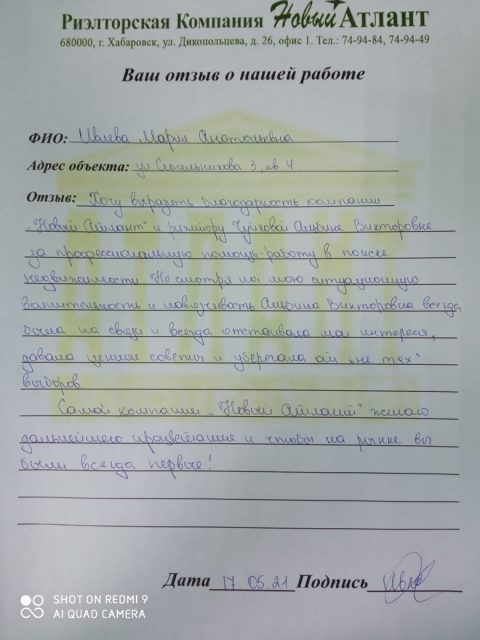 Риэлторская Компания Новый Атлант
680000, г. Хабаровск, ул. Дикопольцева, д. 26, офис 1. Тел.: 74-94-84, 74-94-49
Ваш отзыв о нашей работе
ФИО: Ивлева Мария Анатольевна
Адрес объекта: ул Синельникова 3, кв 4
Отзыв: Хочу выразить благодарность компании
"Новый Атлант" и риэлтору Чуйковой Альбине Викторовне
за профессиональную помощь работу в поиске
недвижимости. Не смотря на мою ситуационную
и навязчивость Альбина Викторовна всегда
была на связи и всегда отстаивала мои интересы,
давала ценные советы и уберегала от "не тех"
выборов.
Самой компании "Новый Атлант" желаю
дальнейшего процветания и чтобы на рынке вы
были всегда первые!
Дата 17.05.21 Подпись
SHOT ON REDMI 9
AI QUAD CAMERA